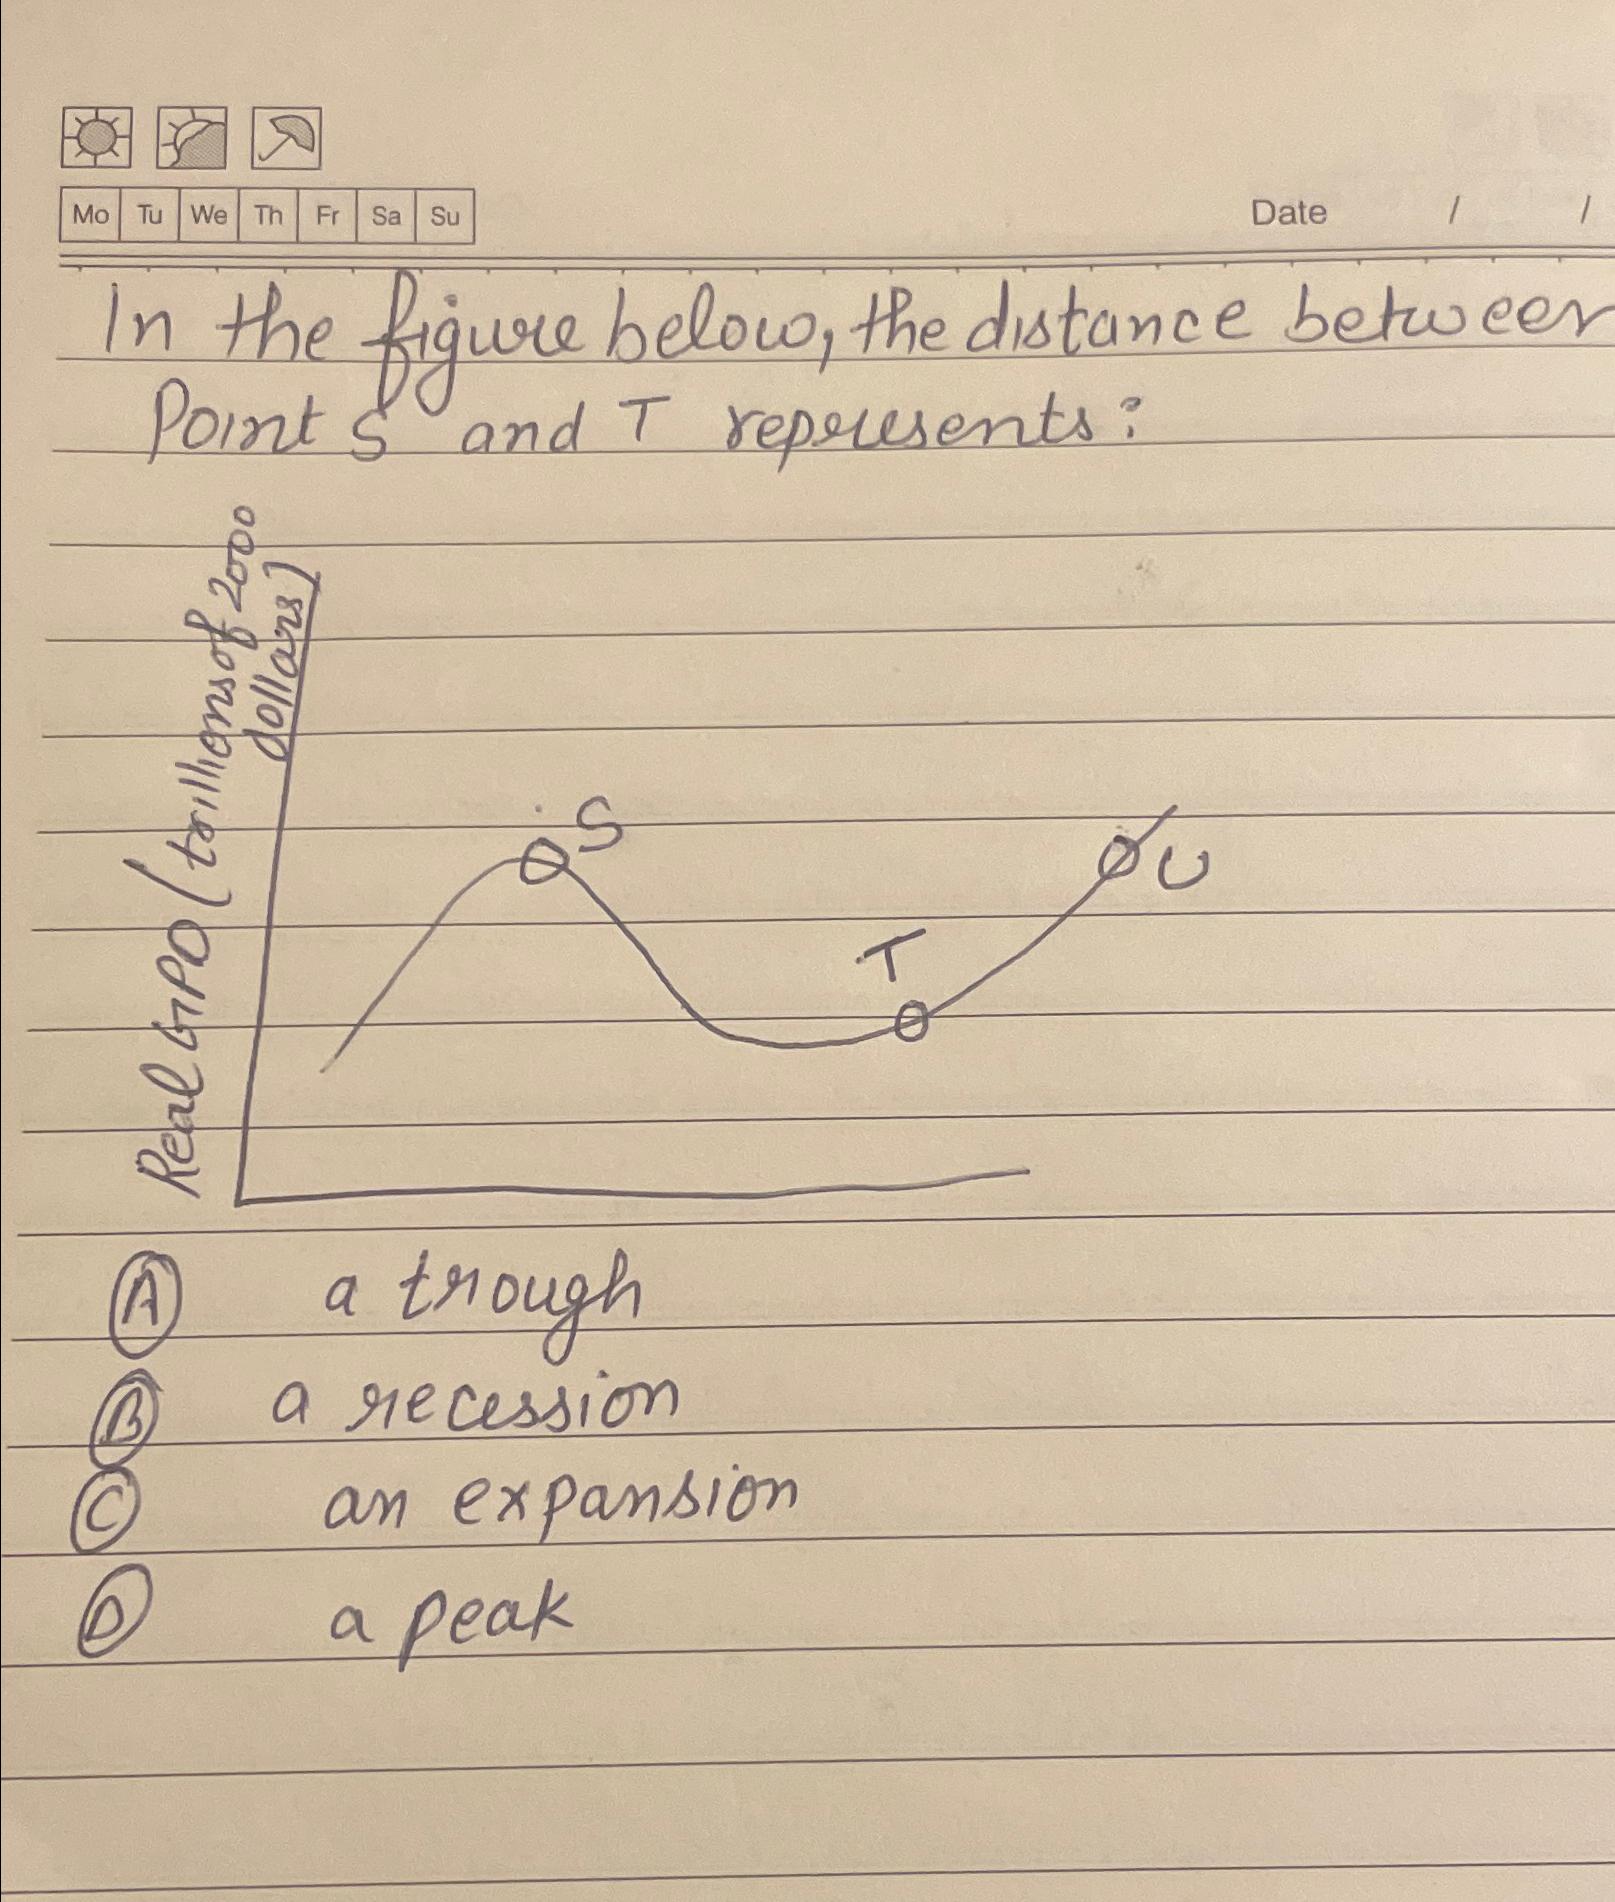 Mo Tu We Th Fr Sa Su
Date / /
In the figure below, the distance between
Point S and T represents:
Real GPD (trillions of 2000
dollars)
S
U
T
A a trough
B a recession
C an expansion
D a peak